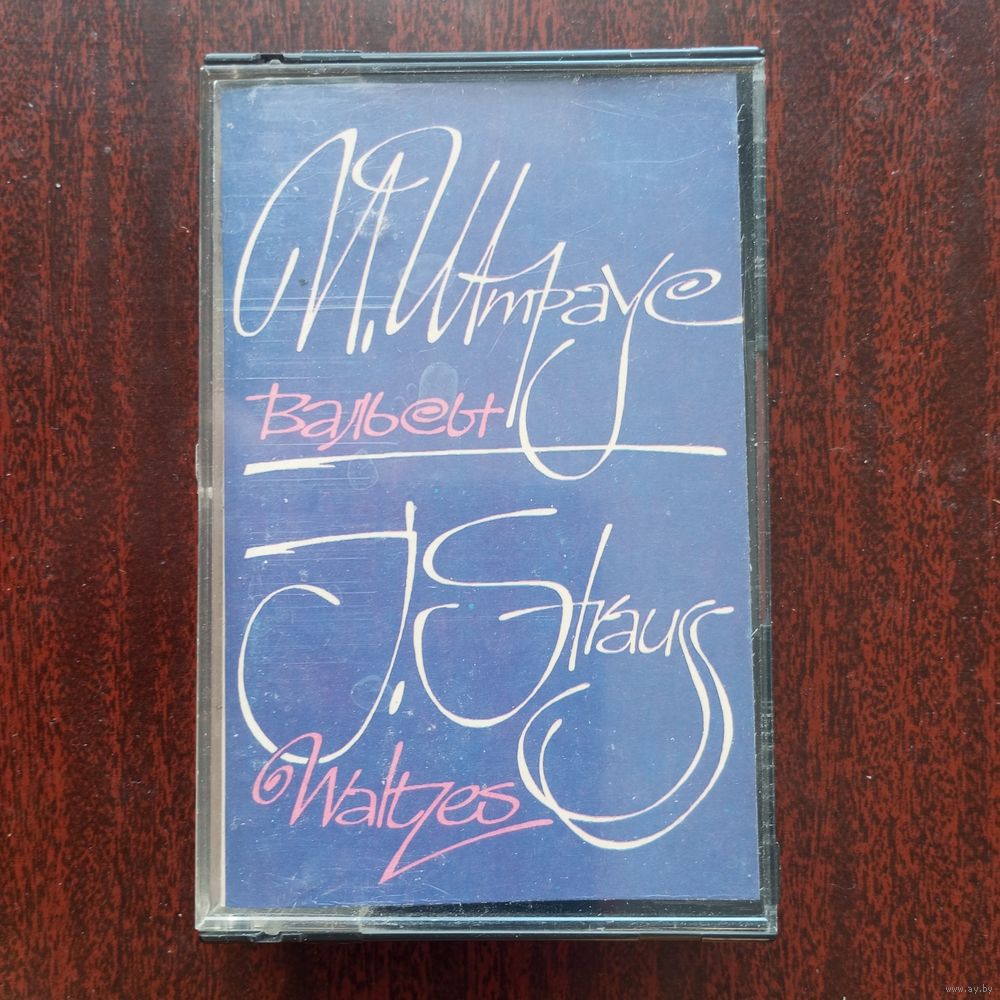 И. Штраус
Вальсы
J. Strauss
Waltzes
www.ay.by